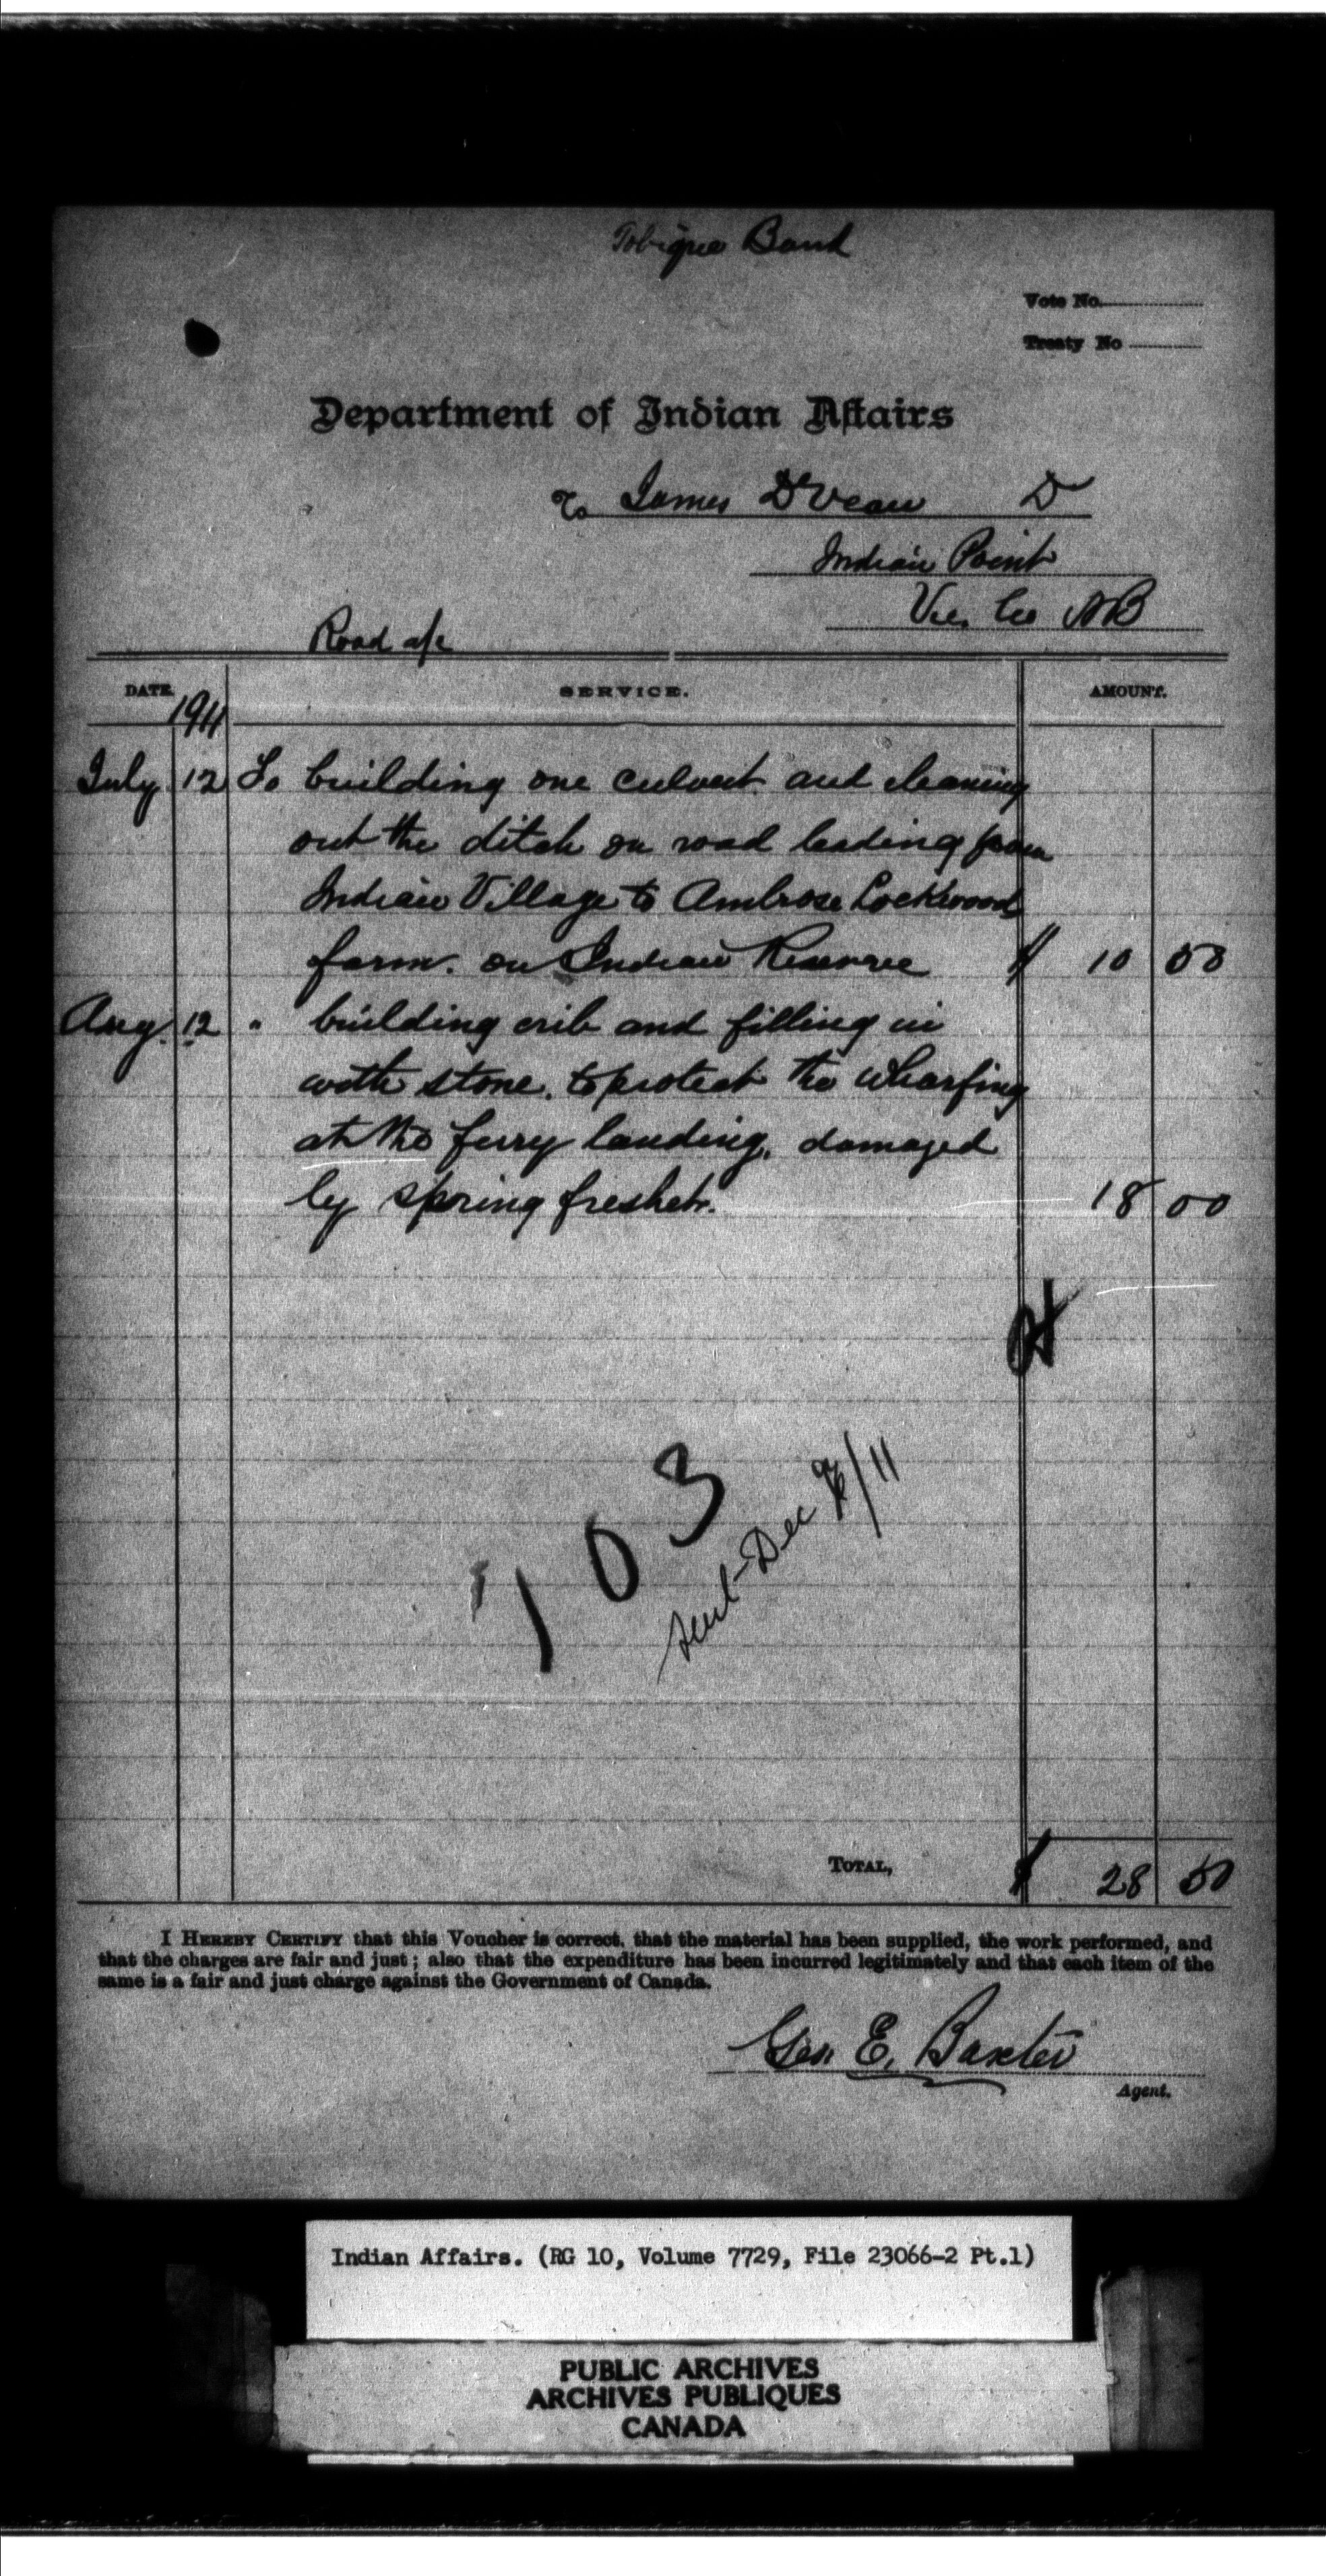 Tobique Band
Vote No.
Treaty No
Department of Indian Affairs
To James DeVeau Dr
Indian Point
Vic. Co NB
Road a/c
DATE. SERVICE. AMOUNT.
1911
July 12 To building one culvert and cleaning
out the ditch on road leading from
Indian Village to Ambrose Lockwood
farm. on Indian Reserve $ 10 50
Aug. 12 " building crib and filling in
with stone. to protect the wharfing
at the ferry landing, damaged
by spring freshet. 18 00
103
sent Dec /11
TOTAL, $ 28 50
I HEREBY CERTIFY that this Voucher is correct, that the material has been supplied, the work performed, and
that the charges are fair and just; also that the expenditure has been incurred legitimately and that each item of the
same is a fair and just charge against the Government of Canada.
Geo E. Baxter
Agent.
Indian Affairs. (RG 10, Volume 7729, File 23066-2 Pt.1)
PUBLIC ARCHIVES
ARCHIVES PUBLIQUES
CANADA